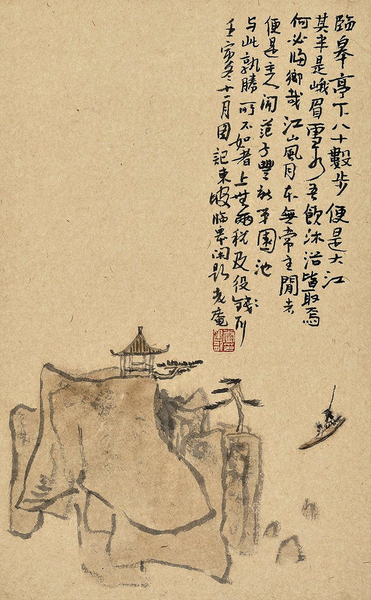 臨皋亭下八十數步便是大江
其半是峨眉雪水吾飲沐浴皆取焉
何必歸鄉哉江山風月本無常主閒者
便是主人聞范子豐新第園池
与此孰勝所不如者上無兩稅及役錢耳
壬寅冬十一月因記東坡臨皋閒題 老庵